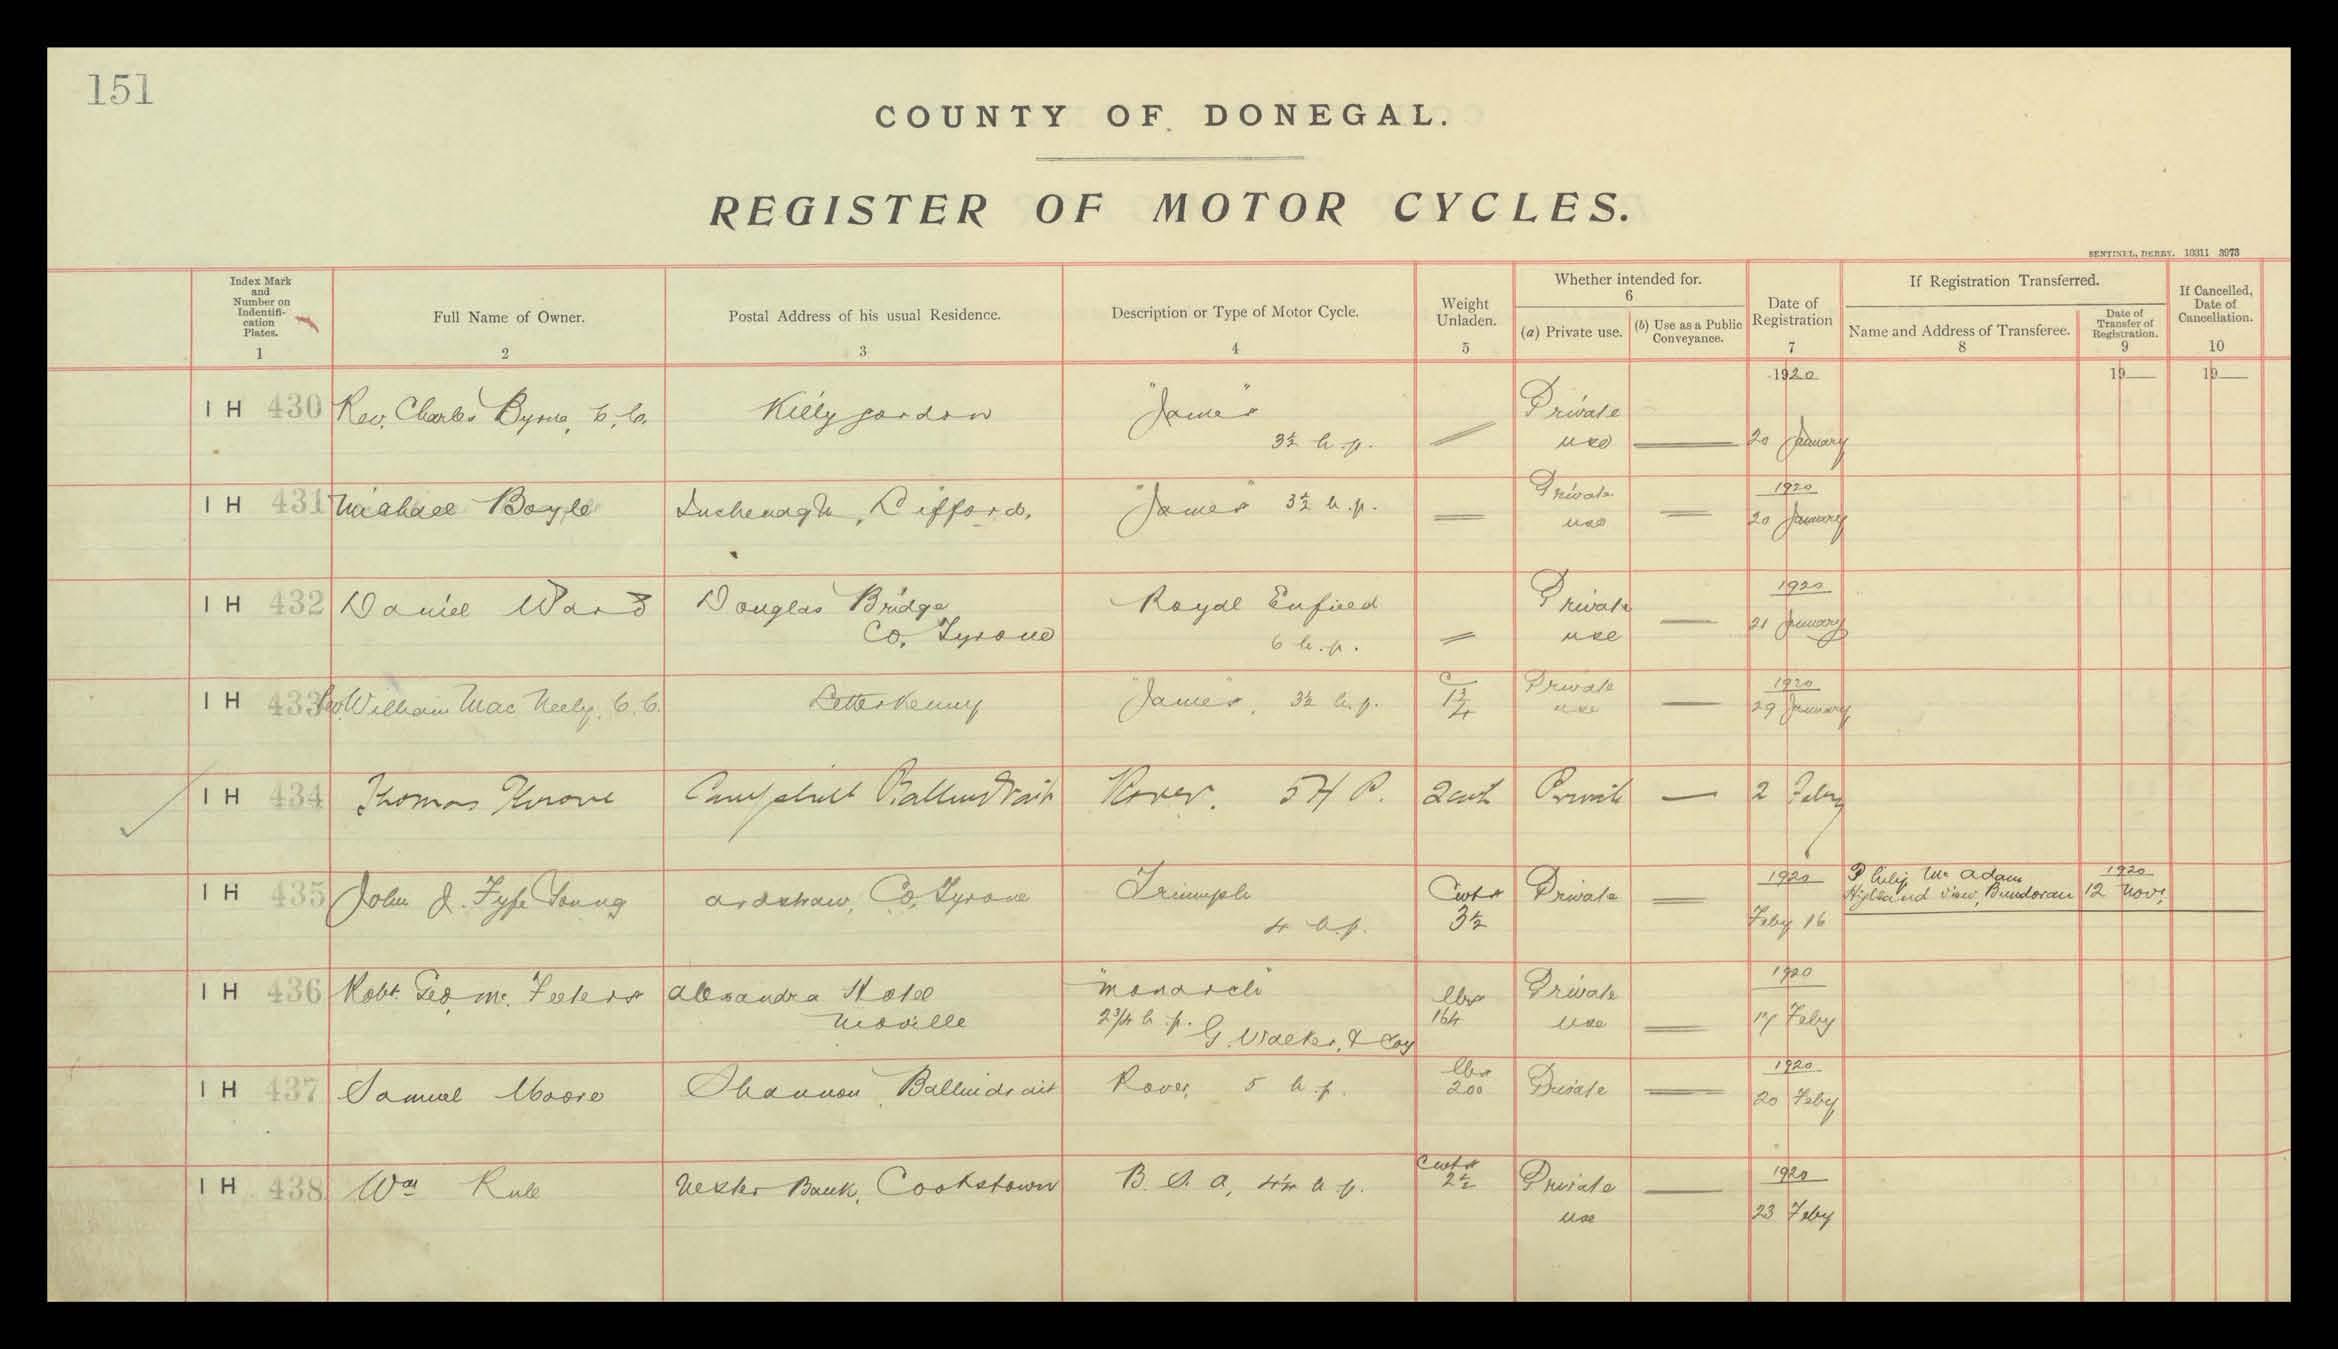 151
COUNTY OF DONEGAL.
REGISTER OF MOTOR CYCLES.
SENTINEL, DERRY. 10311 3973
Index Mark and Number on Indentifi- cation Plates. 1
Full Name of Owner. 2
Postal Address of his usual Residence. 3
Description or Type of Motor Cycle. 4
Weight Unladen. 5
Whether intended for. 6
(a) Private use.
(b) Use as a Public Conveyance.
Date of Registration 7
If Registration Transferred.
Name and Address of Transferee. 8
Date of Transfer of Registration. 9
If Cancelled, Date of Cancellation. 10
1920 19 19
IH 430 Rev. Charles Byrne, C.C. Killygordon "James" Private
3½ h.p. use 20 January
IH 431 Michael Boyle Inchenagh, Lifford. "James" 3½ h.p. Private 1920
use 20 January
IH 432 Daniel Ward Douglas Bridge Royal Enfield Private 1920
Co. Tyrone 6 h.p. use 21 January
IH 433 Rev. William Mac Neely, C.C. Letterkenny "James", 3½ h.p. C 1¾ Private 1920
use 29 January
IH 434 Thomas Ballindrait Rover. 5 H P. 2 cwt Private 2 Feby
IH 435 John J. Fyfe Young Ardstraw, Co. Tyrone Triumph Cwts Private 1920 Philip Mc Adam 1920
Highland View, Bundoran 12 Novr.
4 h.p. 3½ Feby 16
IH 436 Robt. Geo. Mc. Feeters Alexandra Hotel "Monarch" lbs Private 1920
Moville 2¾ h.p. G. Walker, & Coy 164 use 17 Feby
IH 437 Samuel Moore Shannon, Ballindrait Rover, 5 h.p. lbs 200 Private 1920
20 Feby
IH 438 Wm Rule Ulster Bank, Cookstown B. S. A, 4¼ h.p. Cwts 2½ Private 1920
use 23 Feby